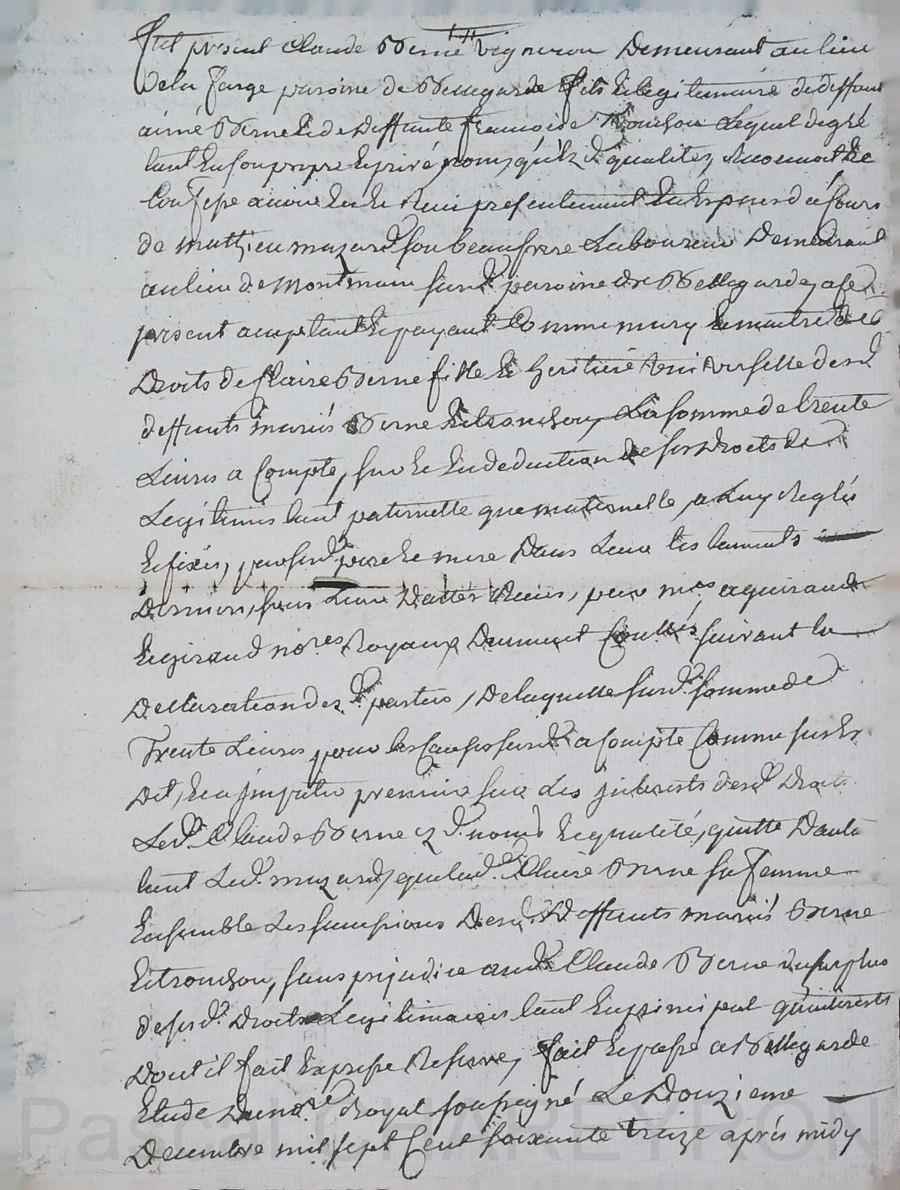 fut present Claude Berne vigneron Demeurant au lieu
De la farge paroisse de Bellegarde fils & legitimaire de deffunt
aimé Berne & de deffunte francoise Tronchon Lequel de gré
tant En son propre & privé nom, qu'Ez d. qualitez, Reconnoit &
Confesse avoir Eu & Receu presentement En Especes de Cours
de matthieu mazard son beaufrere Laboureur Demeurant
au lieu de Montmain sur d. paroisse de Bellegarde, a ce
present acceptant & payant Comme mary & maitre des
Droits de Claire Berne fille & heritiere universelle desd.
deffunts mariés Berne & tronchon, La somme de trente
Livres a Compte, sur & En deduction de ses Droits de
Legitimes tant paternelle que maternelle, a Luy Reglés
& fixés, par sesd. pere & mere Dans Leur testaments
Derniers, sous Leurs Dattes Recus, par mes aguiraud
& giraud nores Royaux Dument Conllés suivant la
Declaration des d. parties, De laquelle susd. somme de
Trente Livres pour les Causes susd. a Compte Comme sus Est
Dit, & a Imputer premier sur Les jnterests desd. Droits
Led. Claude Berne Ez d. noms & qualité, quitte Dautant
tant Led. mazard, que lad. Claire Berne sa femme
Ensemble Les successions Desd. Deffunts mariés Berne
& tronchon, sans prejudice aud. Claude Berne du surplus
de sesd. Droits Legitimaires tant En principal qu'interests
Dont il fait Expresse Reserve, fait & passé a Bellegarde
Etude Du nore Royal soussigné Le Douzieme
Decembre mil sept Cent soixante treize après midy
Pascal CHAREYRON